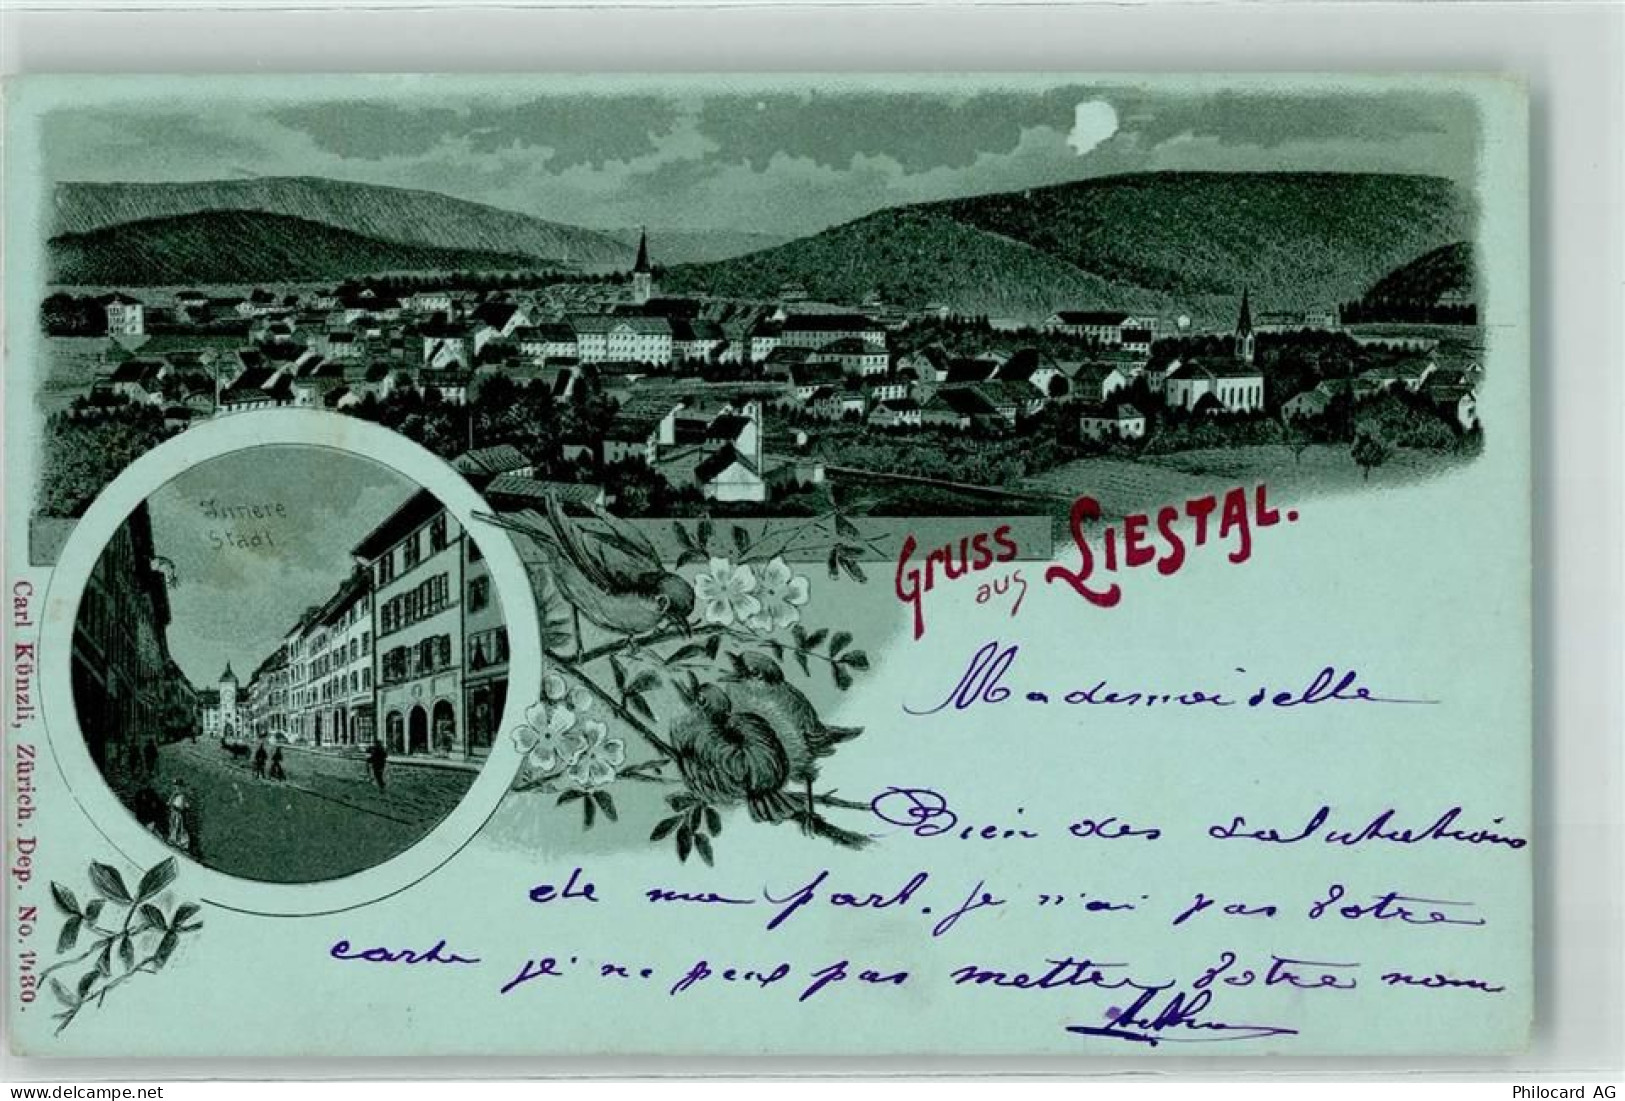 Innere
Stadt
Gruss
aus
Liestal.
Carl Künzli, Zürich. Dep. No. 1430.
Mademoiselle
Bien des salutations
de ma part. je n'ai pas Votre
carte je ne peut pas metter Votre nom
delcampe.net
Philocard AG